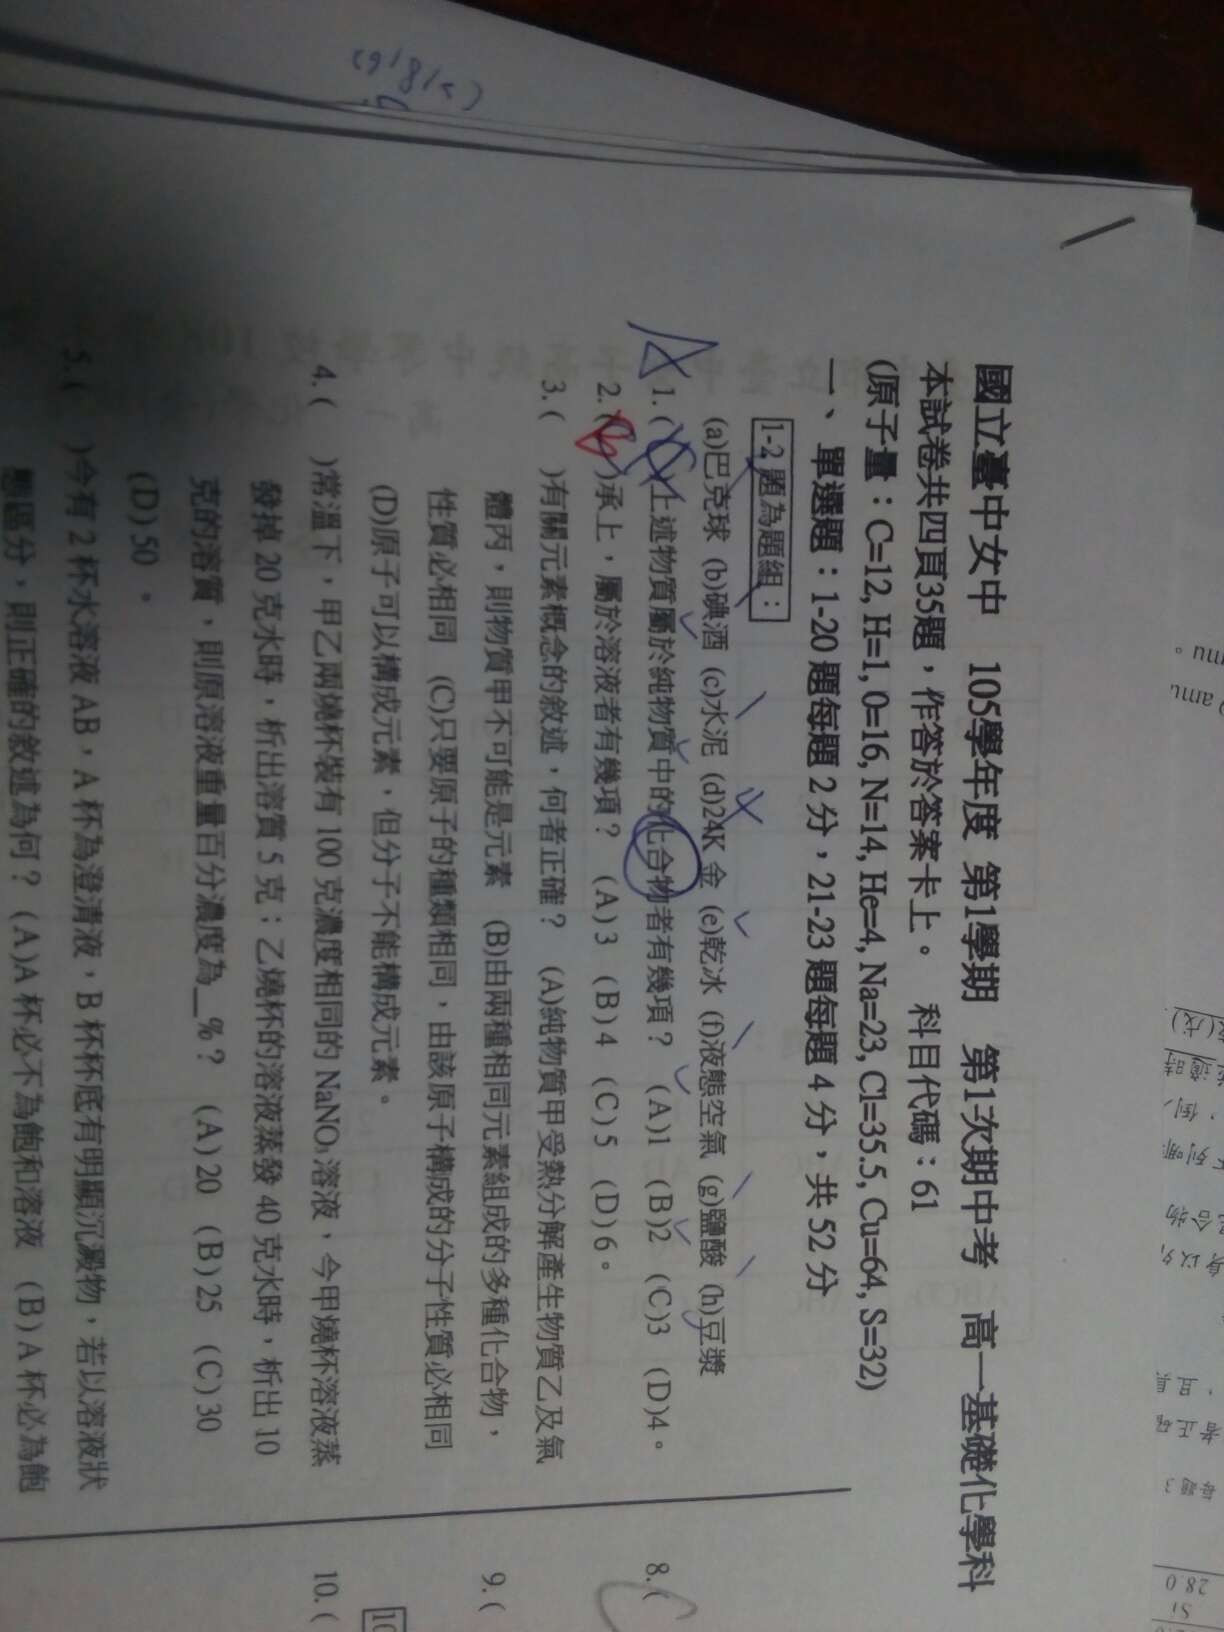 國立臺中女中 105學年度 第1學期 第1次期中考 高一基礎化學科
本試卷共四頁35題，作答於答案卡上。 科目代碼：61
(原子量：C=12, H=1, O=16, N=14, He=4, Na=23, Cl=35.5, Cu=64, S=32)
一、單選題：1-20 題每題 2 分，21-23 題每題 4 分，共 52 分
1-2 題為題組：
(a)巴克球 (b)碘酒 (c)水泥 (d)24K 金 (e)乾冰 (f)液態空氣 (g)鹽酸 (h)豆漿
1. ( )上述物質屬於純物質中的化合物者有幾項？ (A)1 (B)2 (C)3 (D)4。
2. ( )承上，屬於溶液者有幾項？ (A)3 (B)4 (C)5 (D)6。
3. ( )有關元素概念的敘述，何者正確？ (A)純物質甲受熱分解產生物質乙及氣
體丙，則物質甲不可能是元素 (B)由兩種相同元素組成的多種化合物，
性質必相同 (C)只要原子的種類相同，由該原子構成的分子性質必相同
(D)原子可以構成元素，但分子不能構成元素。
4. ( )常溫下，甲乙兩燒杯裝有 100 克濃度相同的 NaNO₃ 溶液，今甲燒杯溶液蒸
發掉 20 克水時，析出溶質 5 克；乙燒杯的溶液蒸發 40 克水時，析出 10
克的溶質，則原溶液重量百分濃度為__%？ (A)20 (B)25 (C)30
(D)50 。
5. ( )今有 2 杯水溶液 AB，A 杯為澄清液，B 杯杯底有明顯沉澱物，若以溶液狀
態區分，則正確的敘述為何？ (A)A 杯必不為飽和溶液 (B)A 杯必為飽
8. (
9. (
10. (
10
28.0
Si